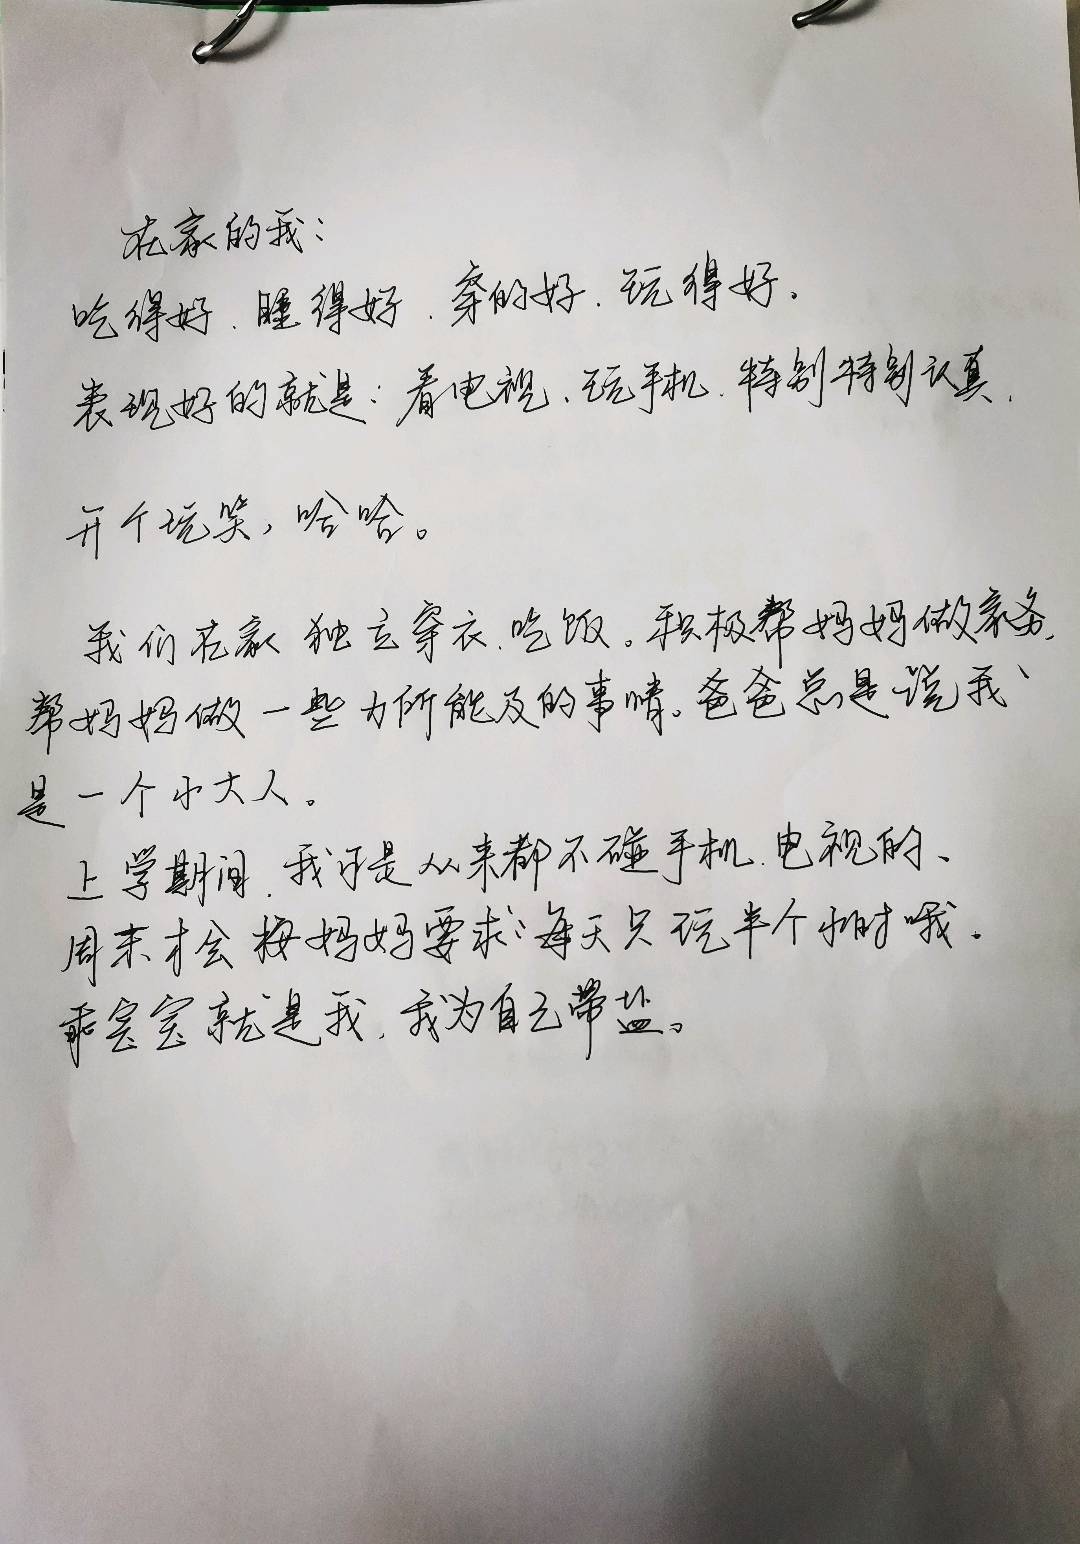 在家的我：
吃得好、睡得好、穿的好、玩得好。
表现好的就是：看电视、玩手机、特别特别认真，
开个玩笑，哈哈。
我们在家独立穿衣、吃饭。积极帮妈妈做家务，
帮妈妈做一些力所能及的事情。爸爸总是说我
是一个小大人。
上学期间，我可是从来都不碰手机、电视的、
周末才会按妈妈要求：每天只玩半个小时哦。
乖宝宝就是我，我为自己带盐。